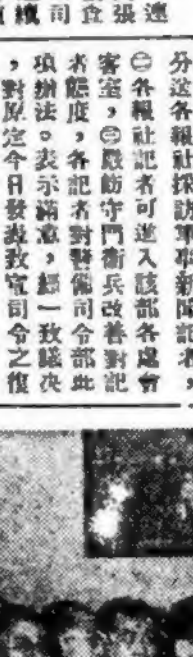 分送各報社採訪軍事新聞記者，
㊁各報社記者可進入該部各處會
客室，㊂嚴飭守門衛兵改善對記
者態度，各記者對警備司令部此
項辦法。表示滿意，經一致議决
，對原定今日發表致宣司令之復